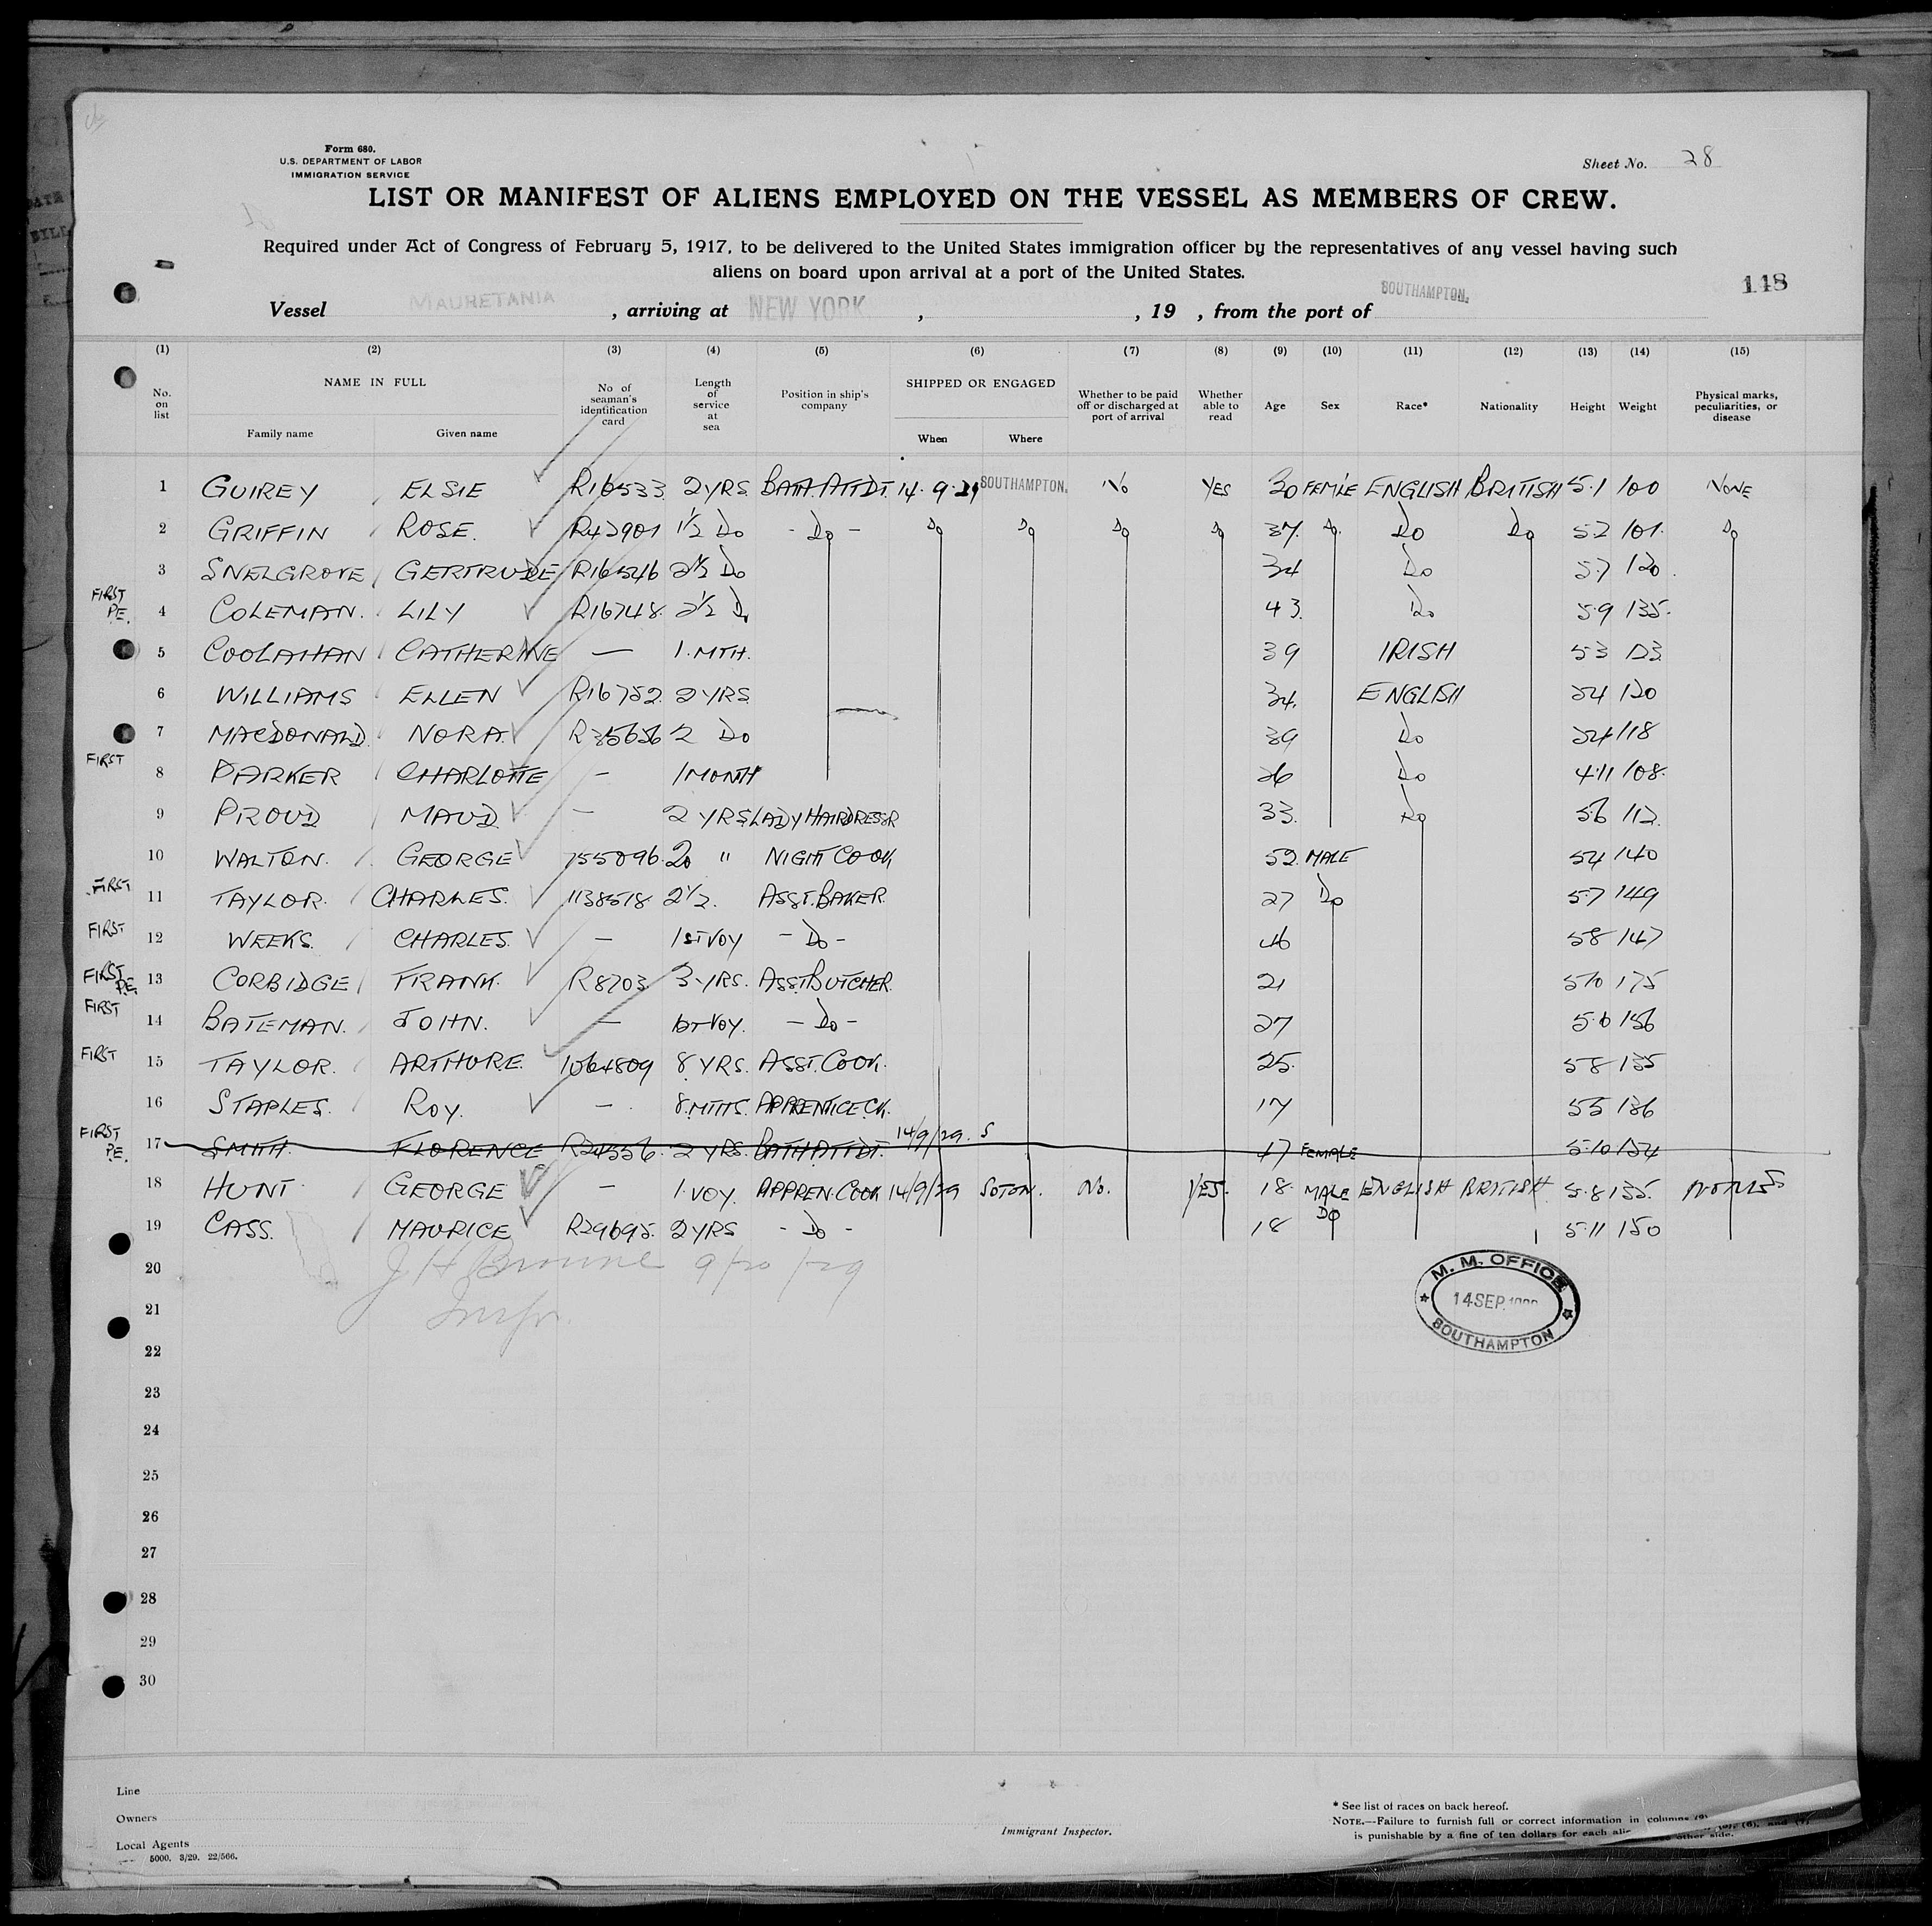 Form 680.
U.S. DEPARTMENT OF LABOR
IMMIGRATION SERVICE
Sheet No. 28
LIST OR MANIFEST OF ALIENS EMPLOYED ON THE VESSEL AS MEMBERS OF CREW.
Required under Act of Congress of February 5, 1917, to be delivered to the United States immigration officer by the representatives of any vessel having such
aliens on board upon arrival at a port of the United States.
148
Vessel MAURETANIA, arriving at NEW YORK, , 19 , from the port of SOUTHAMPTON.
(1) (2) (3) (4) (5) (6) (7) (8) (9) (10) (11) (12) (13) (14) (15)
No. on list NAME IN FULL Family name Given name No. of seaman's identification card Length of service at sea Position in ship's company SHIPPED OR ENGAGED When Where Whether to be paid off or discharged at port of arrival Whether able to read Age Sex Race* Nationality Height Weight Physical marks, peculiarities, or disease
1 GUIREY ELSIE R16533 2 YRS BATH. ATTDT. 14.9.29 SOUTHAMPTON. No YES 30 FEMLE ENGLISH BRITISH 5.1 100 NONE
2 GRIFFIN ROSE. R42901 1½ Do - Do - Do Do Do Do 37. Do. Do Do 5.2 101. Do
3 SNELGROVE GERTRUDE R16546 2½ Do 34 Do 5.7 120.
FIRST P.E. 4 COLEMAN. LILY R16748. 2½ Do 43. Do 5.9 135.
5 COOLAHAN CATHERINE — 1.MTH. 39 IRISH 5.3 123
6 WILLIAMS ELLEN R16752. 2 YRS 34. ENGLISH 5.4 120
7 MACDONALD. NORA. R35656 2 Do 39 Do 5.4 118
FIRST 8 PARKER CHARLOTTE - 1 MONTH 26 Do 4.11 108.
9 PROUD MAUD. — 2 YRS LADY HAIRDRESSR 33. Do 5.6 112.
10 WALTON. GEORGE 755096. 20 " NIGHT COOK 52. MALE 5.4 140
FIRST 11 TAYLOR. CHARLES. 1138518 2½. ASST. BAKER. 27 Do 5.7 149
FIRST 12 WEEKS. CHARLES. — 1ST VOY - Do - 46 5.8 147
FIRST P.E. 13 CORBIDGE FRANK. R8703 3 YRS. ASST. BUTCHER. 21 5.10 175
FIRST 14 BATEMAN. JOHN. — 1ST VOY. - Do - 27 5.6 156
FIRST 15 TAYLOR. ARTHURE. 1064809 8 YRS. ASST. COOK. 25. 5.8 135
16 STAPLES. ROY. - 8.MTHS. APPRENTICE CK. 17 5.5 136
FIRST P.E. 17 SMITH. FLORENCE R24556. 2 YRS. BATH ATTDT. 14/9/29. S 47 FEMALE 5.10 154
18 HUNT GEORGE — 1.VOY. APPREN. COOK 14/9/29 SOTON. No. YES. 18. MALE ENGLISH BRITISH 5.8 135. NONE
19 CASS. MAURICE R29695. 2 YRS - Do - 18 Do 5.11 150
20
J H Browne 9/20/29
21
Inspr.
M. M. OFFICE
14 SEP.
SOUTHAMPTON
22
23
24
25
26
27
28
29
30
Line
Owners
Local Agents
5000. 3/29. 22/566.
Immigrant Inspector.
* See list of races on back hereof.
NOTE.—Failure to furnish full or correct information in columns
is punishable by a fine of ten dollars for each other side.